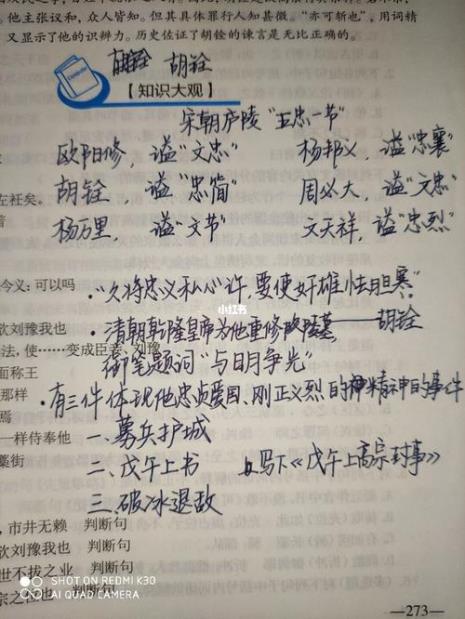 他主张议和，众人皆知。但其具体罪行人知甚微。“亦可斩也”，用词精
又显示了他的识辨力。历史佐证了胡铨的谏言是无比正确的。
胡铨 胡铨
【知识大观】
宋朝庐陵“五忠一节”
欧阳修，谥“文忠” 杨邦义，谥“忠襄”
胡铨，谥“忠简” 周必大，谥“文忠”
左衽矣。
杨万里，谥“文节” 文天祥，谥“忠烈”
今义：可以吗
·“久将忠义私心许，要使奸雄怯胆寒”
小红书
欲刘豫我也
·清朝乾隆皇帝为他重修陵墓——胡铨
法，使……变成臣 刘豫
面称王
御笔题词“与日月争光”
那样
·有三件体现他忠贞爱国、刚正义烈的精神的事件
焉
一样侍奉他
一、募兵护城
藁街
二、戊午上书 写下《戊午上高宗封事》
三、破冰退敌
，市井无赖 判断句
欲刘豫我也 判断句
世不拔之业 判断句
宗之社也 判断句
SHOT ON REDMI K30
AI QUAD CAMERA
—273—